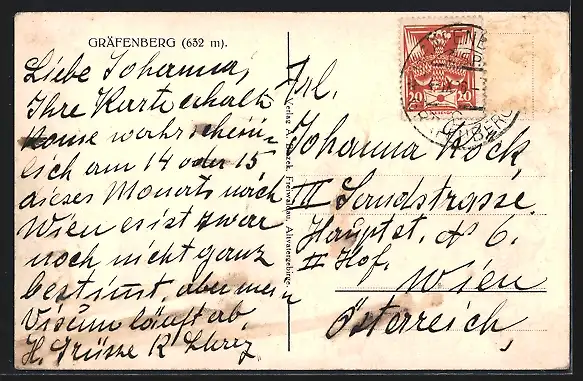 GRÄFENBERG (632 m).
Liebe Johanna,
Ihre Karte erhalt
kome warhrschein-
lich am 14 oder 15
dieses Monats nach
Wien es ist zwar
noch nicht ganz
bestimt, aber mein
Visum läuft ab
H. Grüsse R.
Verlag A. Freiwaldau, Altvatergebirge.
20 20
Frl.
Johanna Kock,
III Landstrasse
Hauptst. № 6.
II Hof.
Wien
Österreich,